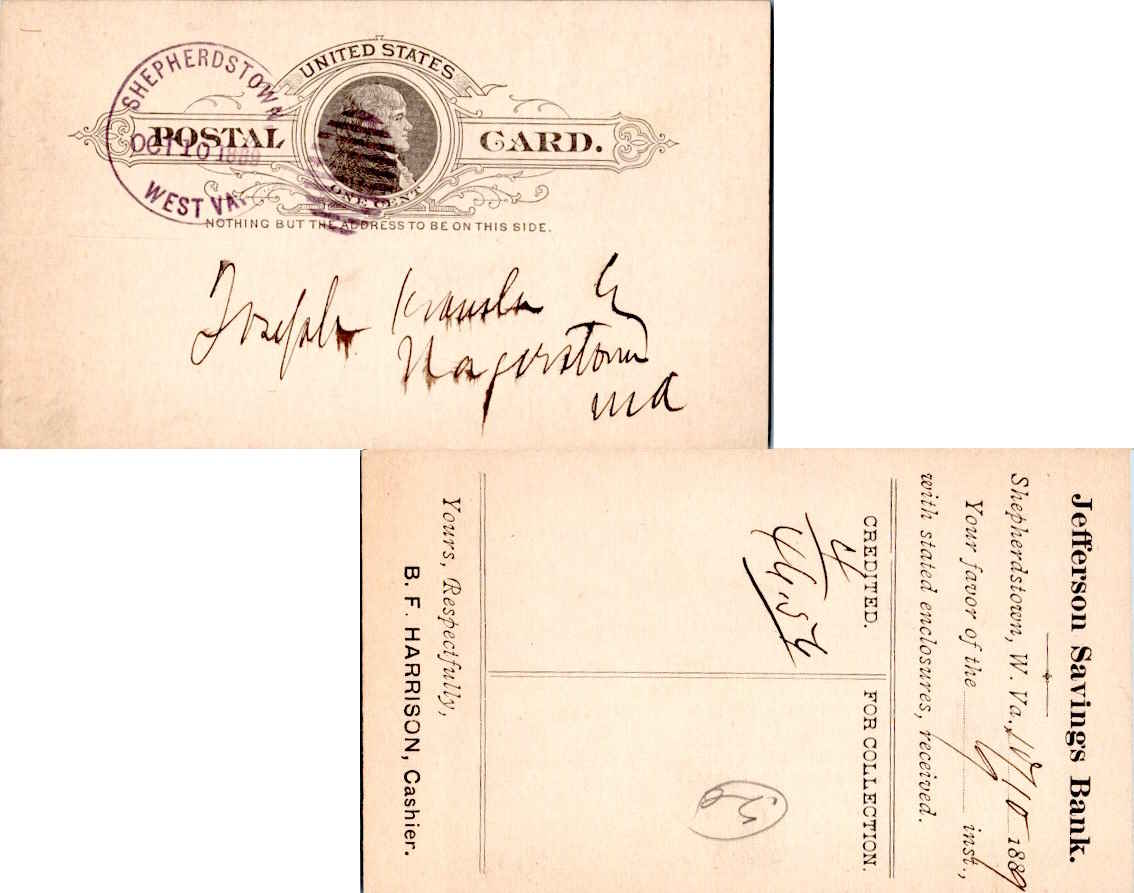 UNITED STATES
POSTAL CARD.
ONE CENT
NOTHING BUT THE ADDRESS TO BE ON THIS SIDE.
SHEPHERDSTOWN
OCT 10 1889
WEST VA.
Joseph
Hagerstown
Md
Jefferson Savings Bank.
Shepherdstown, W. Va., 10/10 1889
Your favor of the 9 inst.,
with stated enclosures, received.
CREDITED. FOR COLLECTION.
44.54
Yours, Respectfully,
B. F. HARRISON, Cashier.